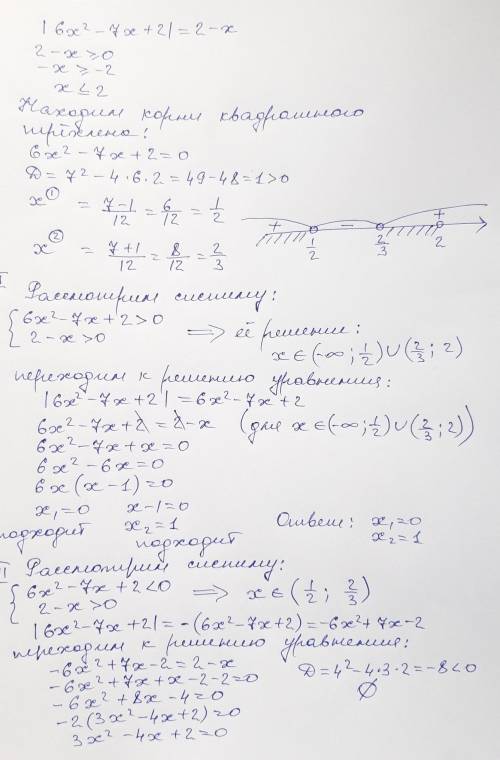 |6x² - 7x + 2| = 2 - x
2 - x ≥ 0
-x ≥ -2
x ≤ 2
Находим корни квадратного
трёхлена:
6x² - 7x + 2 = 0
D = 7² - 4·6·2 = 49 - 48 = 1 > 0
x① = 7-1/12 = 6/12 = 1/2
x② = 7+1/12 = 8/12 = 2/3
+ - +
1/2 2/3 2
I Рассмотрим систему:
{ 6x² - 7x + 2 > 0
2 - x > 0 ⟹ её решение:
x ∈ (-∞; 1/2) ∪ (2/3; 2)
переходим к решению уравнения:
|6x² - 7x + 2| = 6x² - 7x + 2
6x² - 7x + 2 = 2 - x (для x ∈ (-∞; 1/2) ∪ (2/3; 2))
6x² - 7x + x = 0
6x² - 6x = 0
6x (x - 1) = 0
x₁ = 0 x - 1 = 0
подходит x₂ = 1 подходит
Ответ: x₁ = 0
x₂ = 1
II Рассмотрим систему:
{ 6x² - 7x + 2 < 0
2 - x > 0 ⟹ x ∈ (1/2; 2/3)
|6x² - 7x + 2| = -(6x² - 7x + 2) = -6x² + 7x - 2
переходим к решению уравнения:
-6x² + 7x - 2 = 2 - x
-6x² + 7x + x - 2 - 2 = 0
-6x² + 8x - 4 = 0
-2(3x² - 4x + 2) = 0
3x² - 4x + 2 = 0
D = 4² - 4·3·2 = -8 < 0
∅